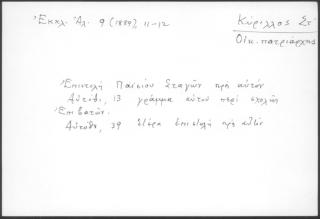 Ἐκκλ. Ἀλ. 9 (1889), 11-12
Κύριλλος Στ΄
Οἰκ. πατριάρχης
Ἐπιστολὴ Παϊσίου Σταγῶν πρὸς αὐτόν
Αὐτόθι, 13 γράμμα αὐτοῦ περὶ σχολῆς
Ἐπιβατῶν.
Αὐτόθι, 39 ἑτέρα ἐπιστολὴ πρὸς αὐτόν